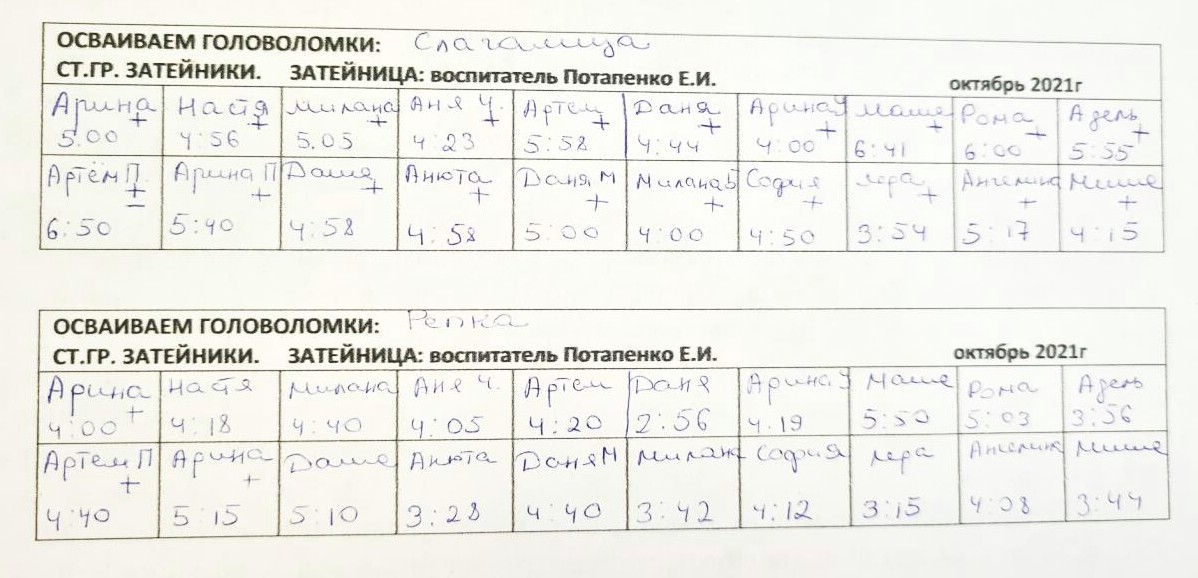 ОСВАИВАЕМ ГОЛОВОЛОМКИ: Слагалица
СТ.ГР. ЗАТЕЙНИКИ. ЗАТЕЙНИЦА: воспитатель Потапенко Е.И. октябрь 2021г
Арина + Настя + Милана + Аня Ч. + Артем + Даня + Арина У + Маша + Рома + Адель +
5.00 4:56 5.05 4:23 5:58 4:44 4:00 6:41 6:00 5:55
Артём П. ± Арина П + Даша + Анюта + Даня М + Милана Б + София + Лера + Ангелина + Миша +
6:50 5:40 4:58 4:58 5:00 4:00 4:50 3:54 5:17 4:15
ОСВАИВАЕМ ГОЛОВОЛОМКИ: Репка
СТ.ГР. ЗАТЕЙНИКИ. ЗАТЕЙНИЦА: воспитатель Потапенко Е.И. октябрь 2021г
Арина + Настя Милана Аня Ч. Артем Даня Арина У Маша Рома Адель
4:00 4:18 4:40 4:05 4:20 2:56 4.19 5:50 5:03 3:56
Артем П + Арина + Даша Анюта Даня М Милана София Лера Ангелина Миша
4:40 5:15 5:10 3:28 4:40 3:42 4:12 3:15 4:08 3:44